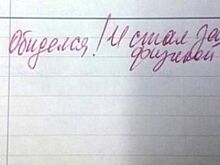 Обиделся! И стал за
физикой